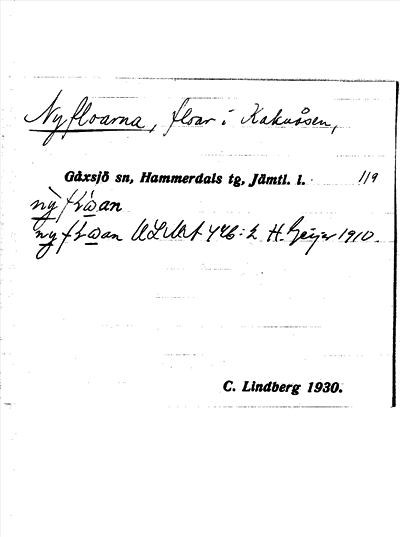 Nyfloarna, floar i Kakuåsen,
Gåxsjö sn, Hammerdals tg, Jämtl. l. 119
ny
ny 446:2 H. Geijer 1910.
C. Lindberg 1930.